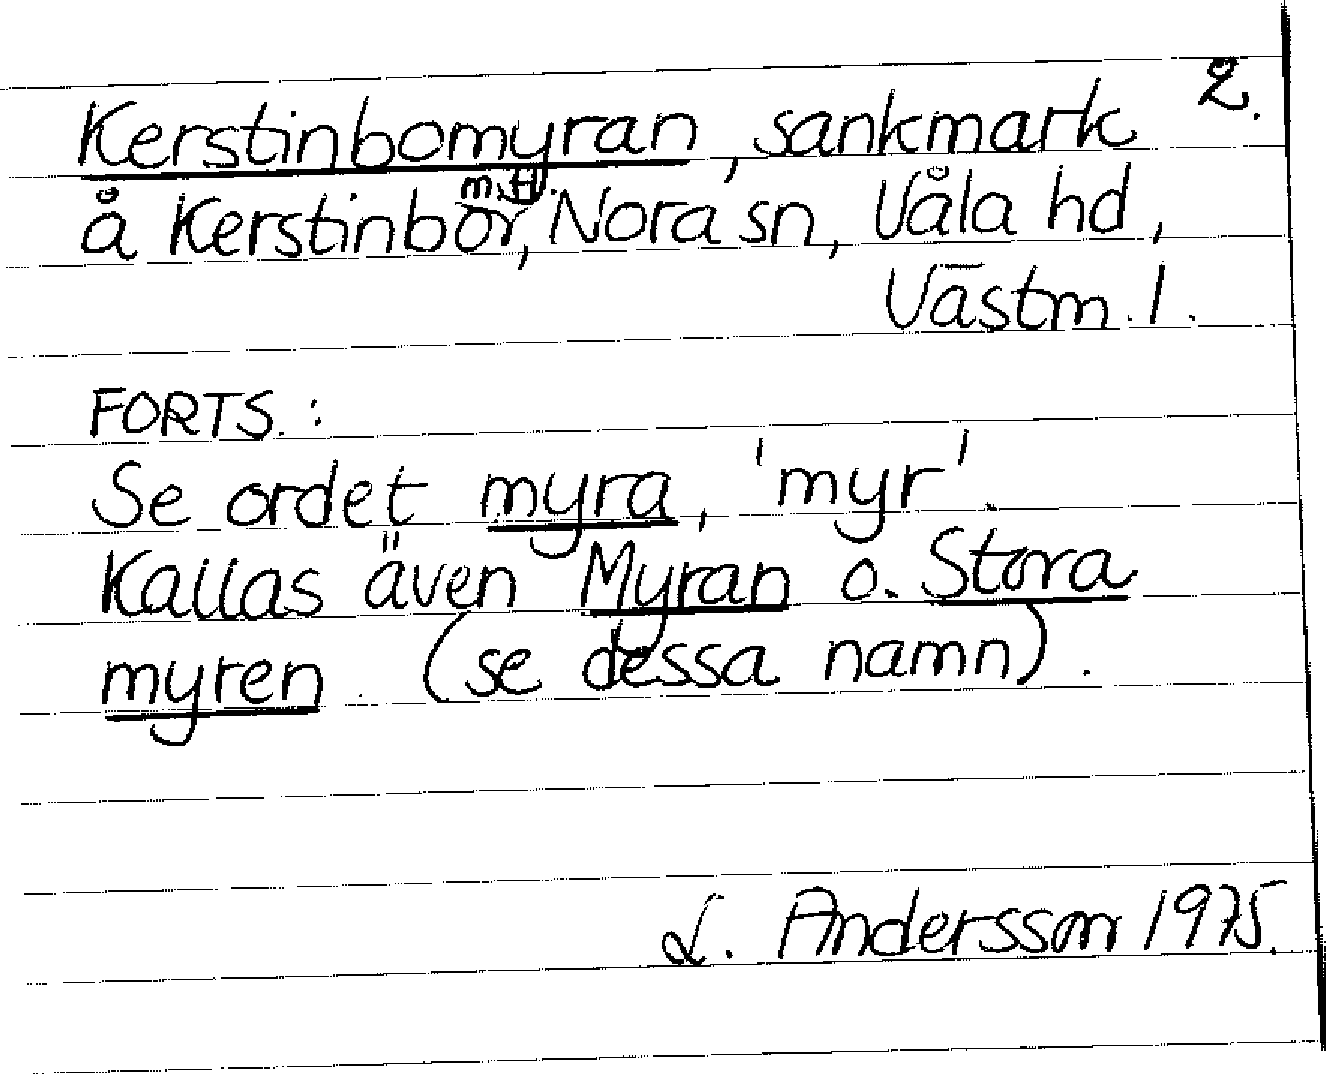 2.
Kerstinbomyran, sankmark
å Kerstinbo, Nora sn, Våla hd,
Västm. l.
FORTS. :
Se ordet myra, 'myr'.
Kallas även Myran o. Stora
myren (se dessa namn).
L. Andersson 1975.